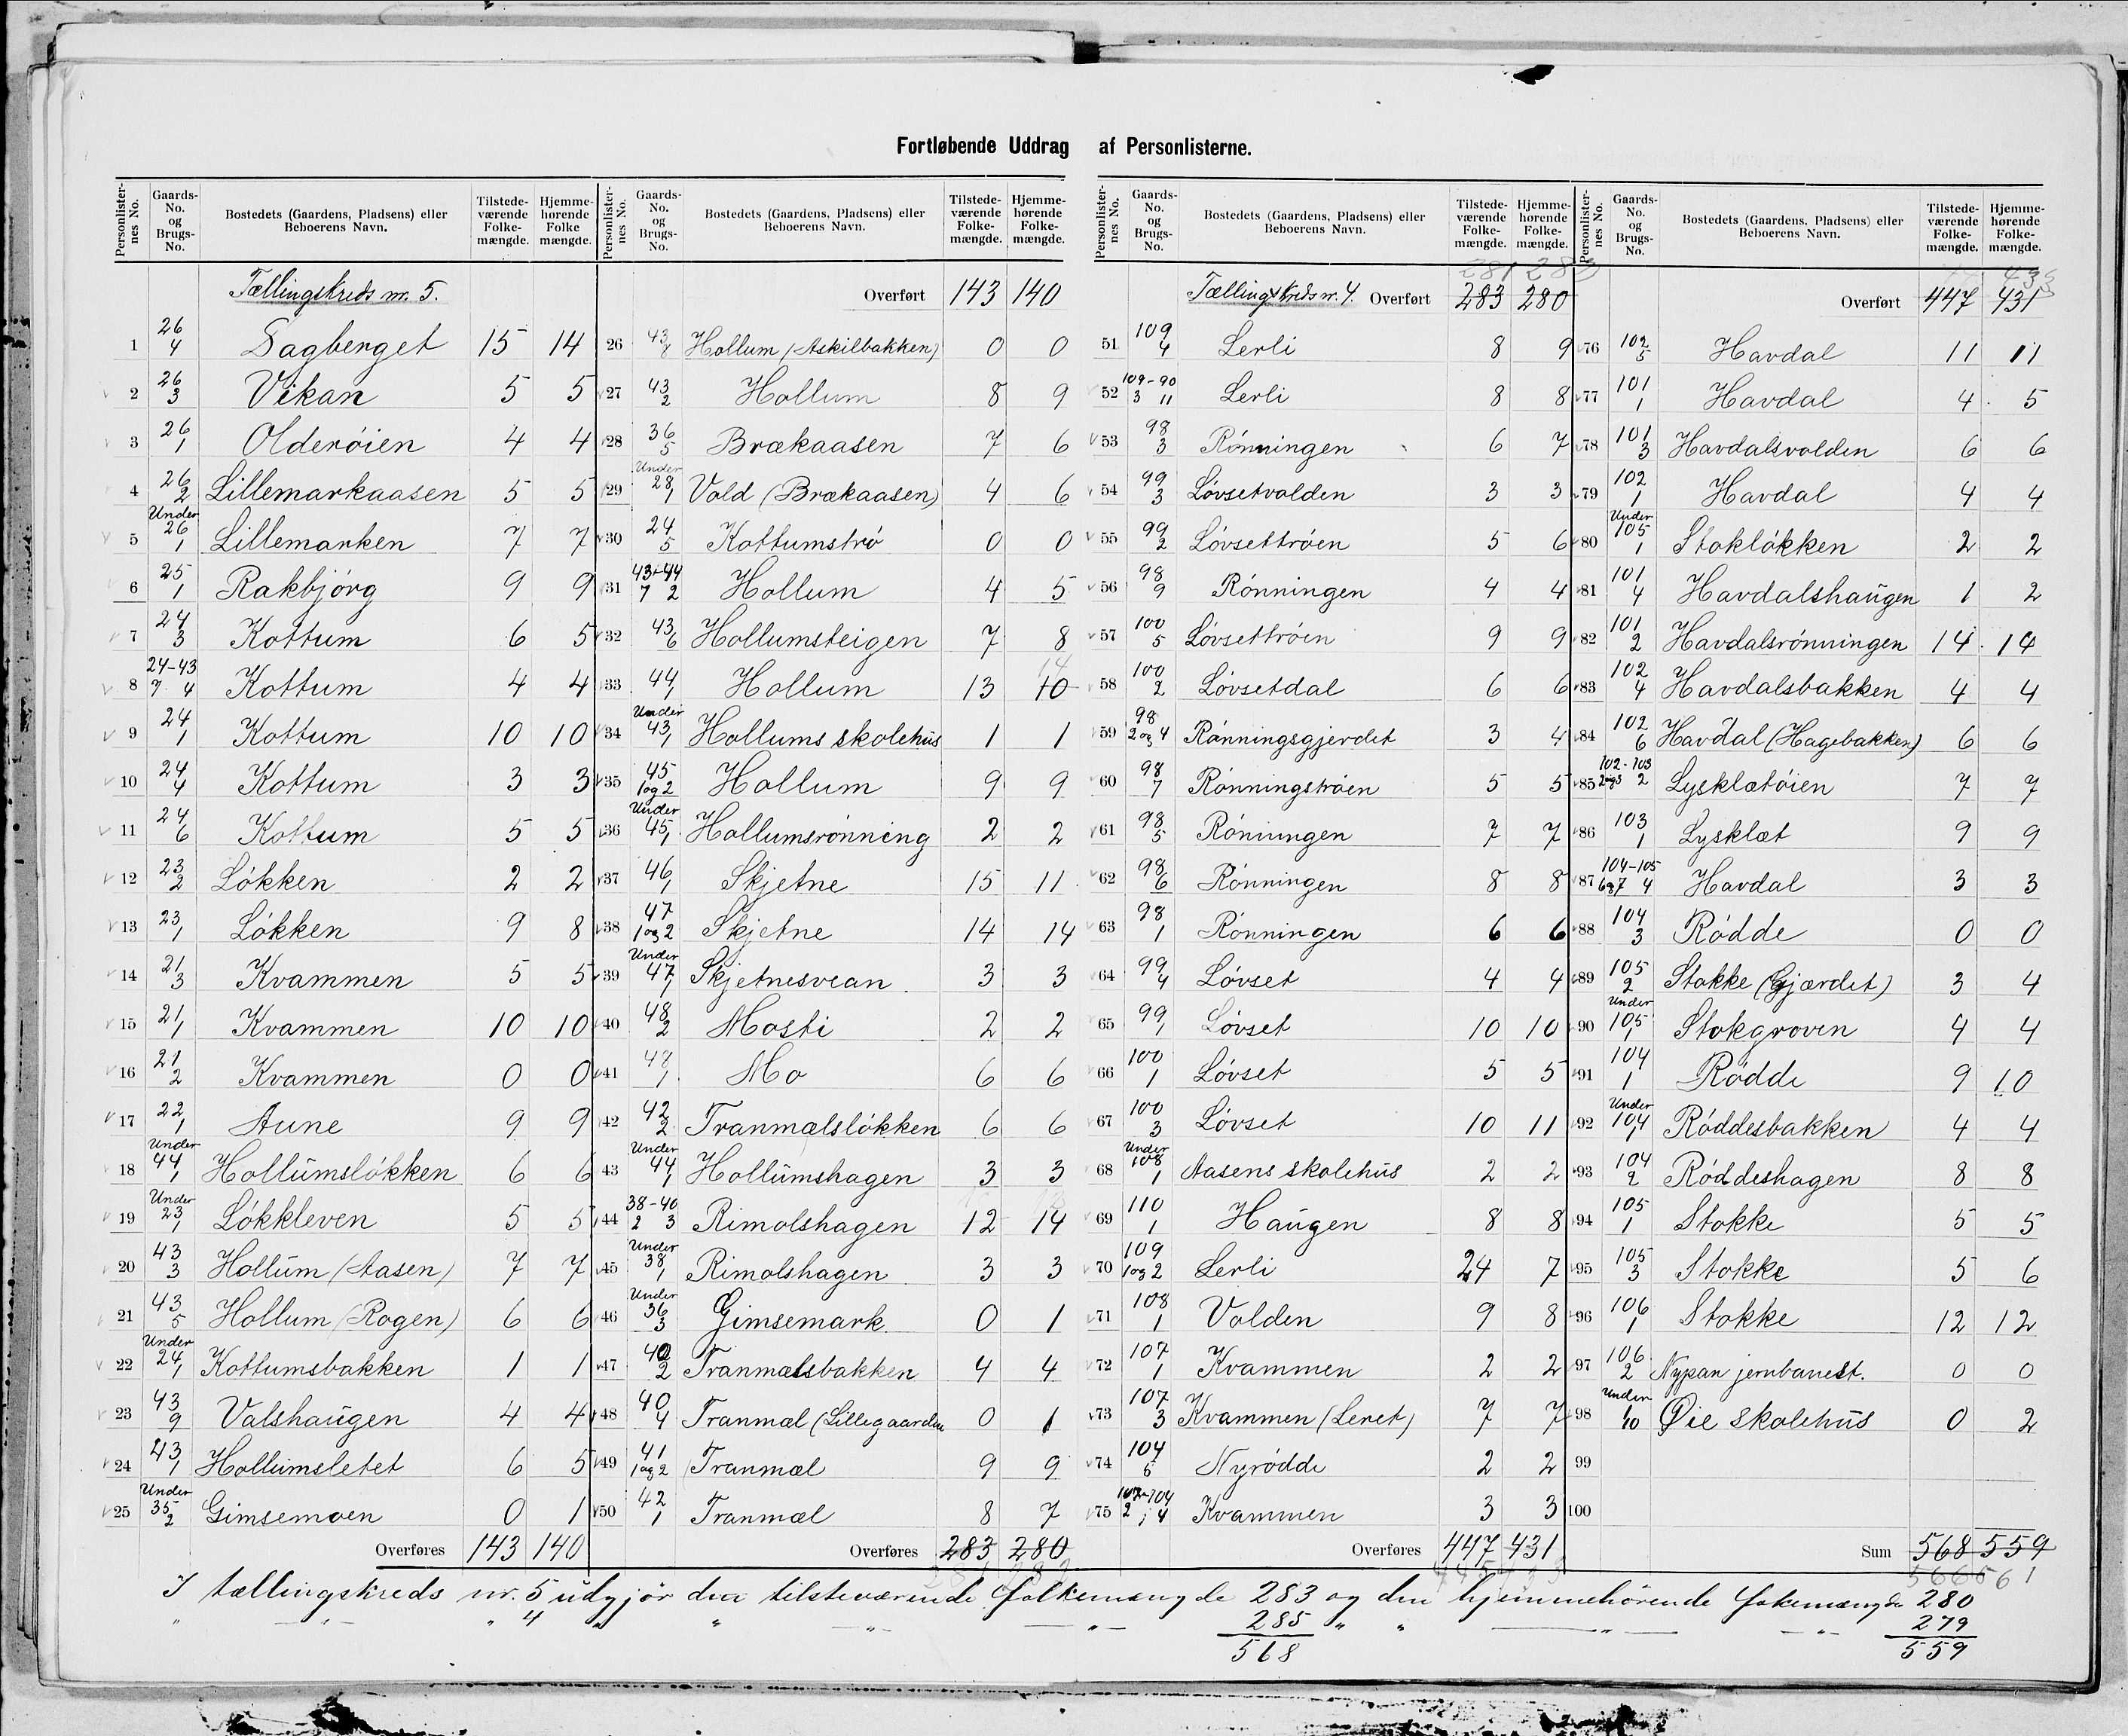 Fortløbende Uddrag af Personlisterne.
Personlister-nes No. | Gaards-No. og Brugs-No. | Bostedets (Gaardens, Pladsens) eller Beboerens Navn. | Tilstede-værende Folke-mængde. | Hjemme-hørende Folke mængde.
Tællingskreds nr. 5.
1 26/4 Dagberget 15 14
2 26/3 Vikan 5 5
3 26/1 Olderøien 4 4
4 26/2 Lillemarkaasen 5 5
5 Under 26/1 Lillemarken 7 7
6 25/1 Rakbjørg 9 9
7 24/3 Kottum 6 5
8 24-43/7 4 Kottum 4 4
9 24/1 Kottum 10 10
10 24/4 Kottum 3 3
11 24/6 Kottum 5 5
12 23/2 Løkken 2 2
13 23/1 Løkken 9 8
14 21/3 Kvammen 5 5
15 21/1 Kvammen 10 10
16 21/2 Kvammen 0 0
17 22/1 Aune 9 9
18 Under 44/1 Hollumsløkken 6 6
19 Under 23/1 Løkkleven 5 5
20 43/3 Hollum (Aasen) 7 7
21 43/5 Hollum (Rogen) 6 6
22 Under 24/1 Kottumsbakken 1 1
23 43/9 Valshaugen 4 4
24 43/1 Hollumsletet 6 5
25 Under 35/2 Gimsemoen 0 1
Overføres 143 140
Personlister-nes No. | Gaards-No. og Brugs-No. | Bostedets (Gaardens, Pladsens) eller Beboerens Navn. | Tilstede-værende Folke-mængde. | Hjemme-hørende Folke-mængde.
Overført 143 140
26 43/8 Hollum (Askilbakken) 0 0
27 43/2 Hollum 8 9
28 36/5 Brækaasen 7 6
29 Under 28/1 Vold (Brækaasen) 4 6
30 24/5 Kottumstrø 0 0
31 43-44/7 2 Hollum 4 5
32 43/6 Hollumsteigen 7 8
33 44/1 Hollum 13 10 14
34 Under 43/1 Hollums skolehus 1 1
35 45/1 og 2 Hollum 9 9
36 Under 45/1 Hollumsrønning 2 2
37 46/1 Skjetne 15 11
38 47/1 og 2 Skjetne 14 14
39 Under 47/1 Skjetnesvean 3 3
40 48/2 Mosti 2 2
41 48/1 Mo 6 6
42 42/2 Tranmælsløkken 6 6
43 Under 44/1 Hollumshagen 3 3
44 38-40/2 3 Rimolshagen 12 14
45 Under 38/1 Rimolshagen 3 3
46 Under 36/3 Gimsemark 0 1
47 40/2 Tranmælsbakken 4 4
48 40/4 Tranmæl (Lillegaarden 0 1
49 41/1 og 2 Tranmæl 9 9
50 42/1 Tranmæl 8 7
Overføres 283 280
Personlister-nes No. | Gaards-No. og Brugs-No. | Bostedets (Gaardens, Pladsens) eller Beboerens Navn. | Tilstede-værende Folke-mængde. | Hjemme-hørende Folke-mængde.
281 283
Tællingskreds nr. 4. Overført 283 280
51 109/4 Lerli 8 9
52 109-90/3 11 Lerli 8 8
53 98/3 Rønningen 6 7
54 99/3 Løvsetvolden 3 3
55 99/2 Løvsettrøen 5 6
56 98/9 Rønningen 4 4
57 100/5 Løvsettrøen 9 9
58 100/2 Løvsetdal 6 6
59 98/2 og 4 Rønningsgjerdet 3 4
60 98/7 Rønningstrøen 5 5
61 98/5 Rønningen 7 7
62 98/6 Rønningen 8 8
63 98/1 Rønningen 6 6
64 99/4 Løvset 4 4
65 99/1 Løvset 10 10
66 100/1 Løvset 5 5
67 100/3 Løvset 10 11
68 Under 108/1 Aasens skolehus 2 2
69 110/1 Haugen 8 8
70 109/1 og 2 Lerli 24 7
71 108/1 Volden 9 8
72 107/1 Kvammen 2 2
73 107/3 Kvammen (Leret) 7 7
74 104/5 Nyrødde 2 2
75 107-104/2 4 Kvammen 3 3
Overføres 447 431
Personlister-nes No. | Gaards-No. og Brugs-No. | Bostedets (Gaardens, Pladsens) eller Beboerens Navn. | Tilstede-værende Folke-mængde. | Hjemme-hørende Folke-mængde.
Overført 447 431 433
76 102/5 Havdal 11 11
77 101/1 Havdal 4 5
78 101/3 Havdalsvolden 6 6
79 102/1 Havdal 4 4
80 Under 105/1 Stokløkken 2 2
81 101/4 Havdalshaugen 1 2
82 101/2 Havdalsrønningen 14 14
83 102/4 Havdalsbakken 4 4
84 102/6 Havdal (Hagebakken) 6 6
85 102-103/2 og 3 2 Lysklætøien 7 7
86 103/1 Lysklæt 9 9
87 104-105/6 og 7 4 Havdal 3 3
88 104/3 Rødde 0 0
89 105/2 Stokke (Gjærdet) 3 4
90 Under 105/1 Stokgroven 4 4
91 104/1 Rødde 9 10
92 Under 104/1 Røddesbakken 4 4
93 104/2 Røddeshagen 8 8
94 105/1 Stokke 5 5
95 105/3 Stokke 5 6
96 106/1 Stokke 12 12
97 106/2 Nypan jernbanest. 0 0
98 Under 1/10 Øie skolehus 0 2
99
100
Sum 568 559
566 561
I tællingskreds nr. 5 udgjør den tilsteværende folkemængde 283 og den hjemmehørende fokemængde 280
" — " — " 4 " " — " — — " — 285 " " — " — — " — 279
568 559